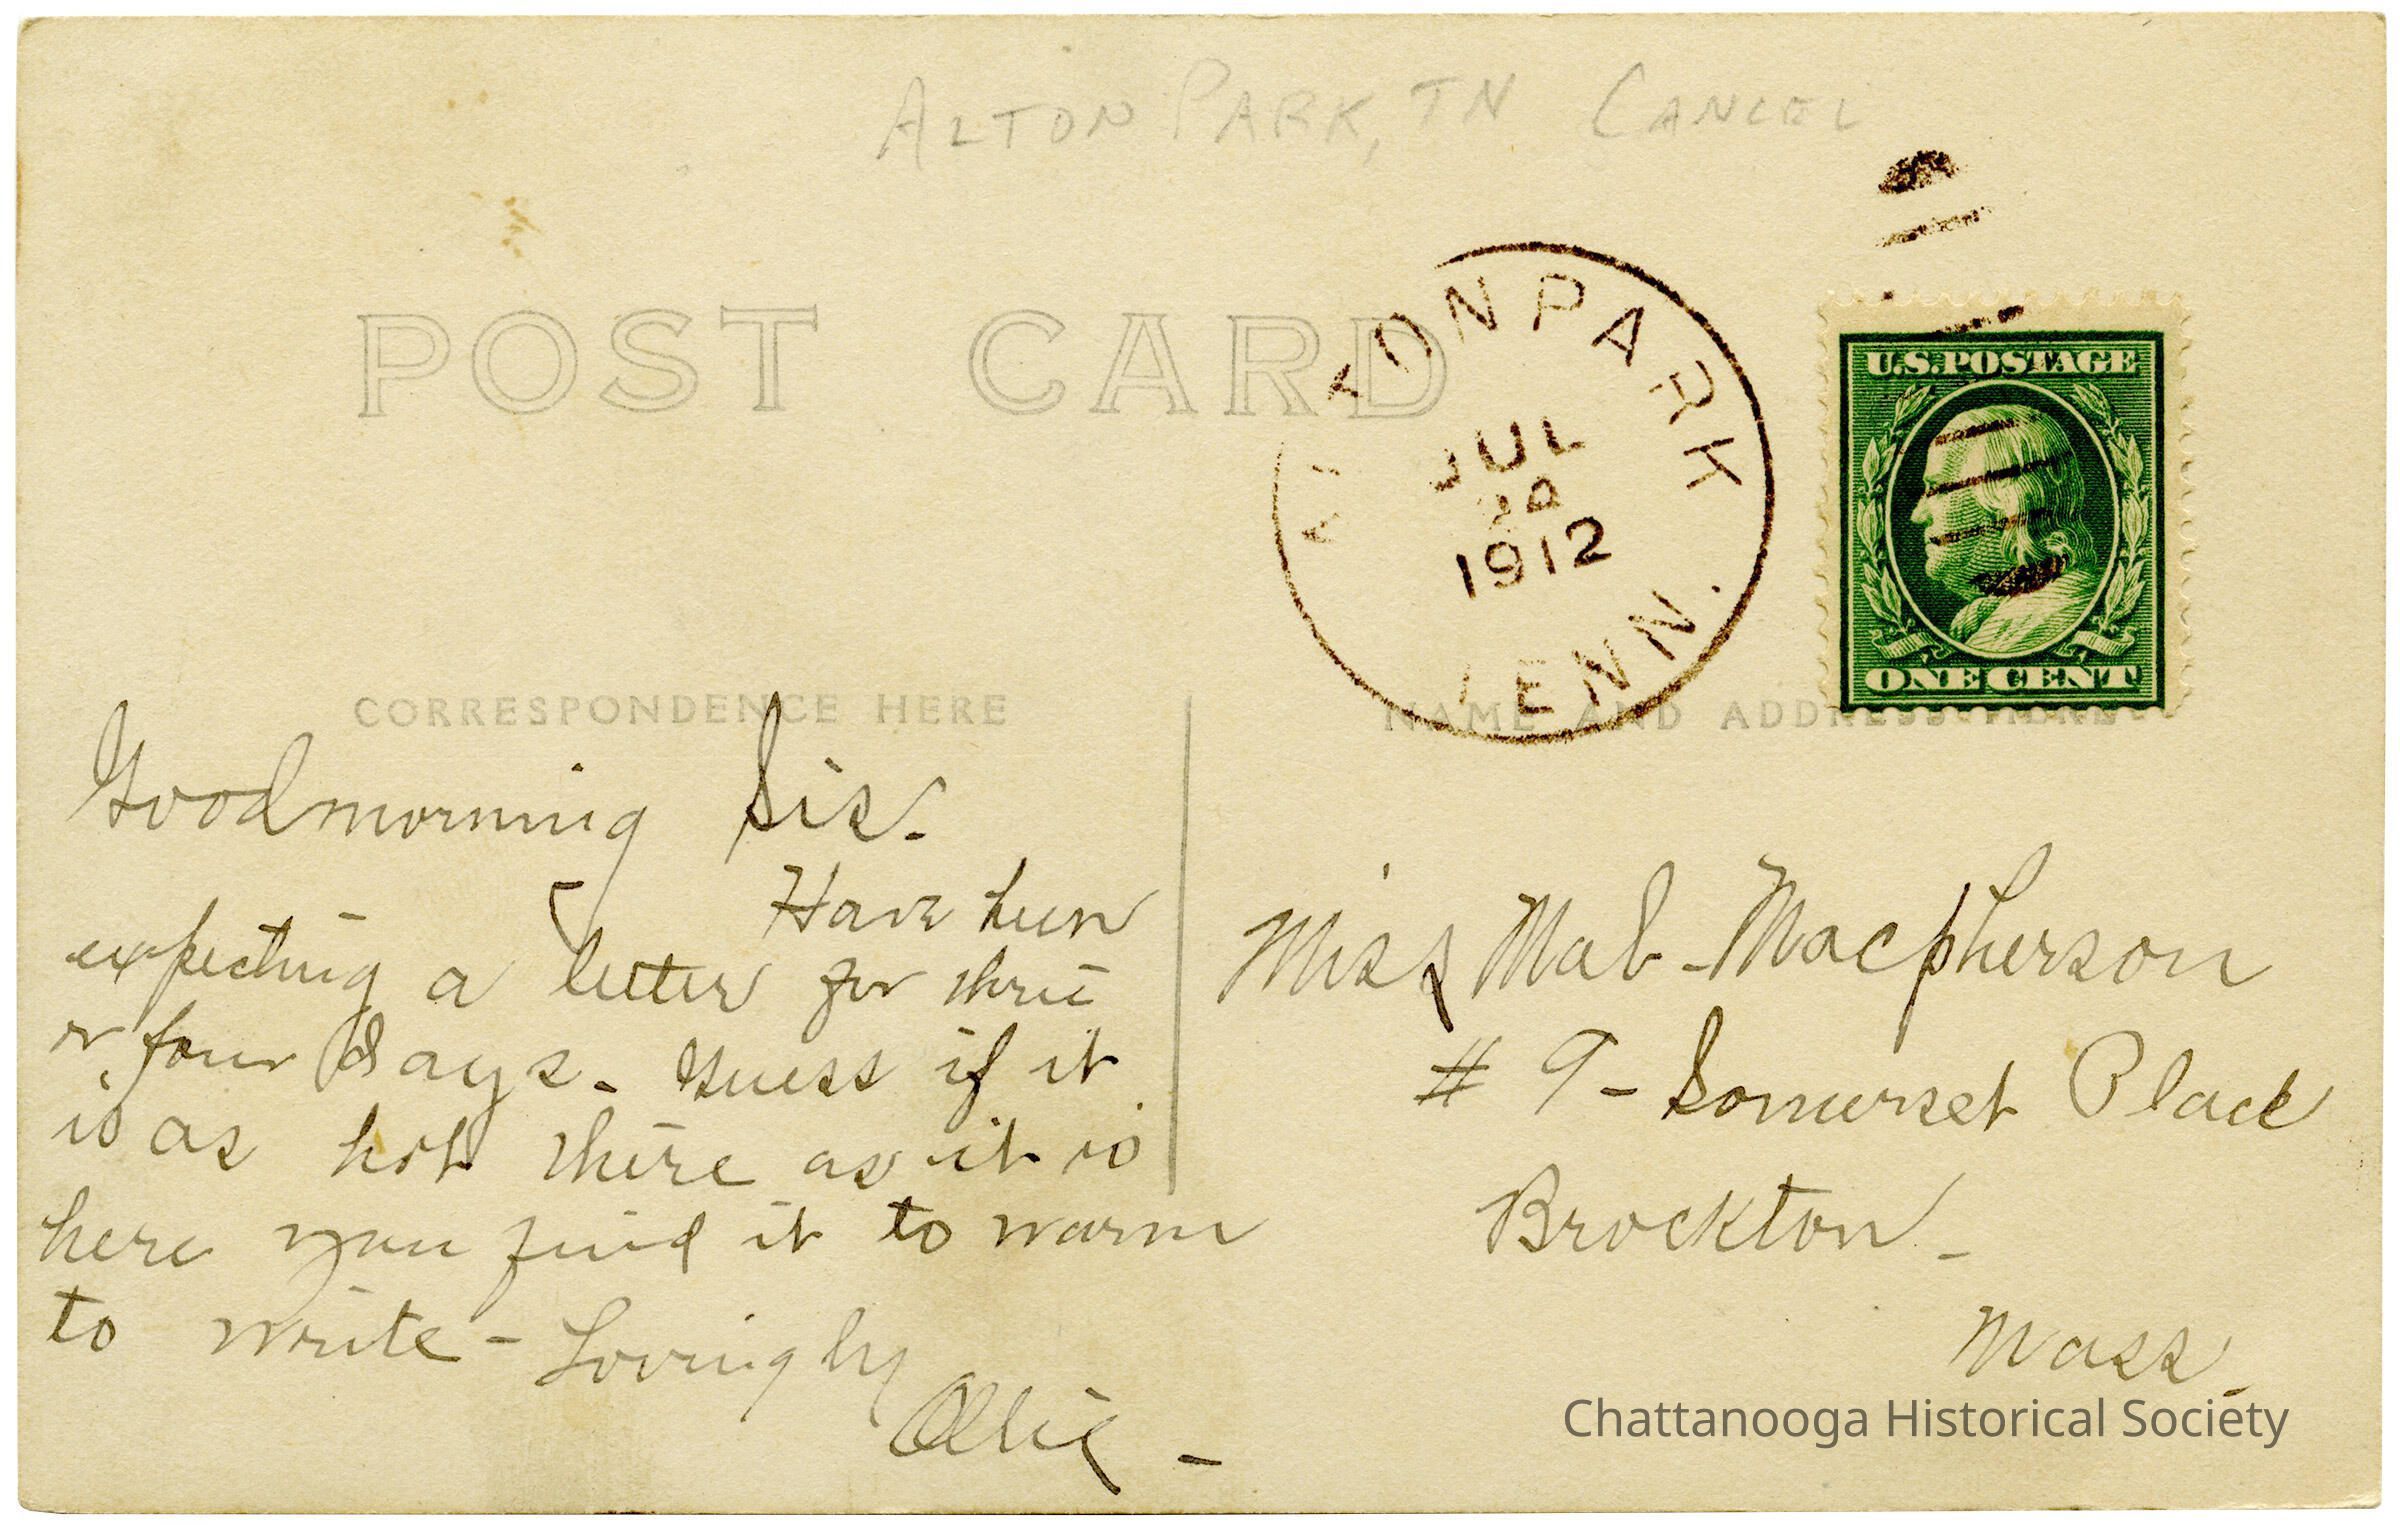 ALTON PARK, TN CANCEL
POST CARD
ALTON PARK
JUL
1912
TENN.
U.S. POSTAGE
ONE CENT
CORRESPONDENCE HERE
NAME AND ADDRESS HERE
Goodmorning Sis.
Have been
expecting a letter for three
or four days. Guess if it
is as hot there as it is
here you find it to warm
to write - Lovingly
Ollie -
Miss Mab - Macpherson
# 9 - Somerset Place
Brockton -
Mass.
Chattanooga Historical Society